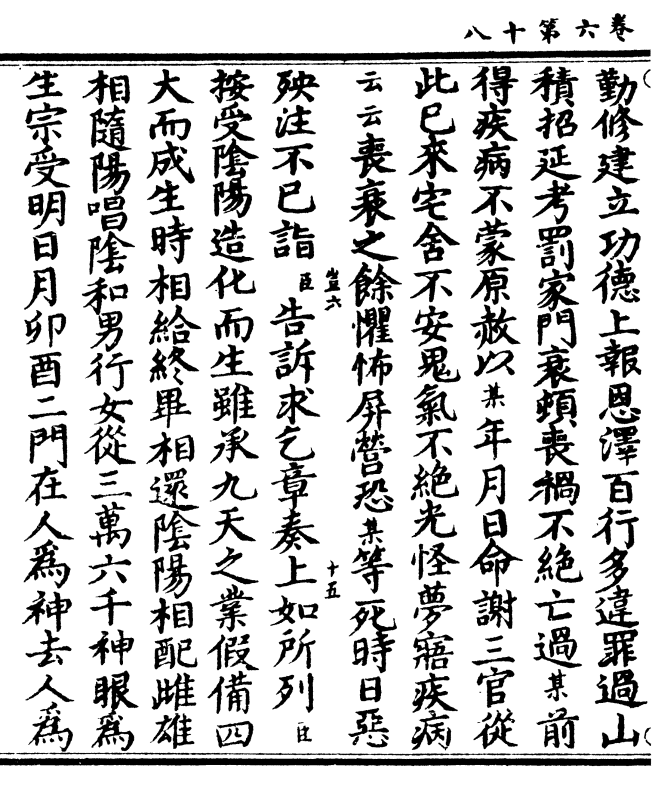 卷六第十八
勤修建立功德上報恩澤百行多違罪過山
積招延考罰家門衰頓喪禍不絕亡過某前
得疾病不蒙原赦以某年月日命謝三官從
此已來宅舍不安鬼氣不絕光怪夢寤疾病
云云喪衰之餘懼怖屏營恐某等死時日惡
豈六
十五
殃注不已詣臣告訴求乞章奏上如所列臣
按受陰陽造化而生雖承九天之業假備四
大而成生時相給終畢相還陰陽相配雌雄
相隨陽唱陰和男行女從三萬六千神眼為
生宗受明日月卯酉二門在人為神去人為